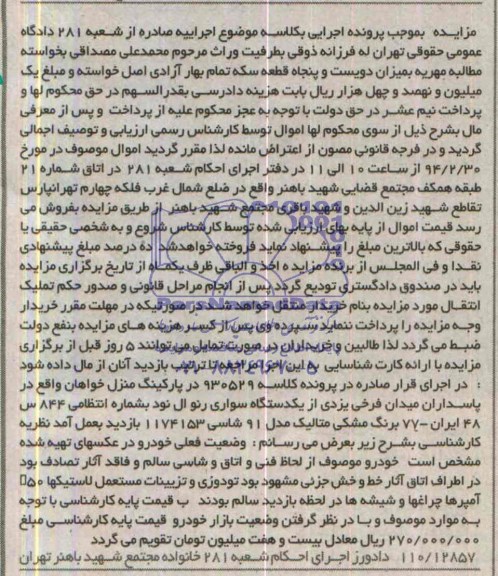 مزایـــده بموجب پرونده اجرایی بکلاسه موضوع اجراییه صادره از شــعبه ۲۸۱ دادگاه
عمومی حقوقی تهران له فرزانه ذوقی بطرفیت وراث مرحوم محمدعلی مصدافی بخواسته
مطالبه مهریه بمیزان دویست و پنجاه قطعه سکه تمام بهار آزادی اصل خواسته و مبلغ یک
میلیون و نهصد و چهل هزار ریال بابت هزینه دادرســی بقدرالسـهم در حق محکوم لها و
پرداخت نیم عشــر در حق دولت با توجه به عجز محکوم علیه از پرداخت و پس از معرفی
مال بشرح ذیل از سوی محکوم لها اموال توسط کارشناس رسمی ارزیابی و توصیف اجمالی
گردید و در فرجه قانونی مصون از اعتراض مانده لذا مقرر گردید اموال موصوف در مورخ
۹۴/۲/۳۰ از ساعت ۱۰ الی ۱۱ در دفتر اجرای احکام شعبه ۲۸۱ در اتاق شماره ۲۱
طبقه همکف مجتمع قضایی شهید باهنر واقع در ضلع شمال غرب فلکه چهارم تهرانپارس
تقاطع شـهید زین الدین و شهید باقری مجتمع شـهید باهنر از طریق مزایده بفروش می
رسد قیمت اموال از پایه بهای ارزیابی شده توسط کارشناس شروع و به شخصی حقیقی یا
حقوقی که بالاترین مبلغ را پیشنهاد نماید فروخته خواهدشد ده درصد مبلغ پیشنهادی
نقـدا و فی المجلـس از برنده مزایده اخذ و الباقی ظرف یکماه از تاریخ برگزاری مزایده
باید در صندوق دادگستری تودیع گردد پس از انجام مراحل قانونی و صدور حکم تملیک
انتقـال مورد مزایده بنام خریدار منتقل خواهد شـد در صورتیکه در مهلت مقرر خریدار
وجـه مزایده را پرداخت ننماید سـپرده وی پس از کسـر هزینه هـای مزایده بنفع دولت
ضبـط می گردد لذا طالبین و خریداران در صورت تمایل می توانند ۵ روز قبل از برگزاری
مزایده با ارائه کارت شناسایی به این اجرا مراجعه تا ترتیب بازدید آنان از مال داده شود
: در اجرای قرار صادره در پرونده کلاسه ۹۳۰۵۲۹ در پارکینگ منزل خواهان واقع در
پاسـداران میدان فرخی یزدی از یکدستگاه سواری رنو ال نود بشماره انتظامی ۸۴۴ س
۴۸ ایران -۷۷ برنگ مشکی متالیک مدل ۹۱ شاسی ۱۱۷۴۱۵۳ بازدید بعمل آمد نظریه
کارشناسـی بشـرح زیر بعرض می رسـانم : وضعیت فعلی خودرو در عکسهای تهیه شده
مشخص است خودرو موصوف از لحاظ فنی و اتاق و شاسی سالم و فاقد آثار تصادف بود
در اطراف اتاق آثار خط و خش جزئی مشهود بود تودوزی و تزیینات مستعمل لاستیکها ۵۰
آمپرها چراغها و شیشه ها در لحظه بازدید سالم بودند ب قیمت پایه کارشناسی با توجه
بـه موارد موصوف و بـا در نظر گرفتن وضعیت بازار خودرو قیمت پایه کارشناسـی مبلغ
۲۷۰/۰۰۰/۰۰۰ ریال معادل بیست و هفت میلیون تومان تقویم می گردد
۱۱۰/۱۲۸۵۷ دادورز اجـرای احـکام شـعبه ۲۸۱ خانواده مجتمع شـهید باهنر تهران